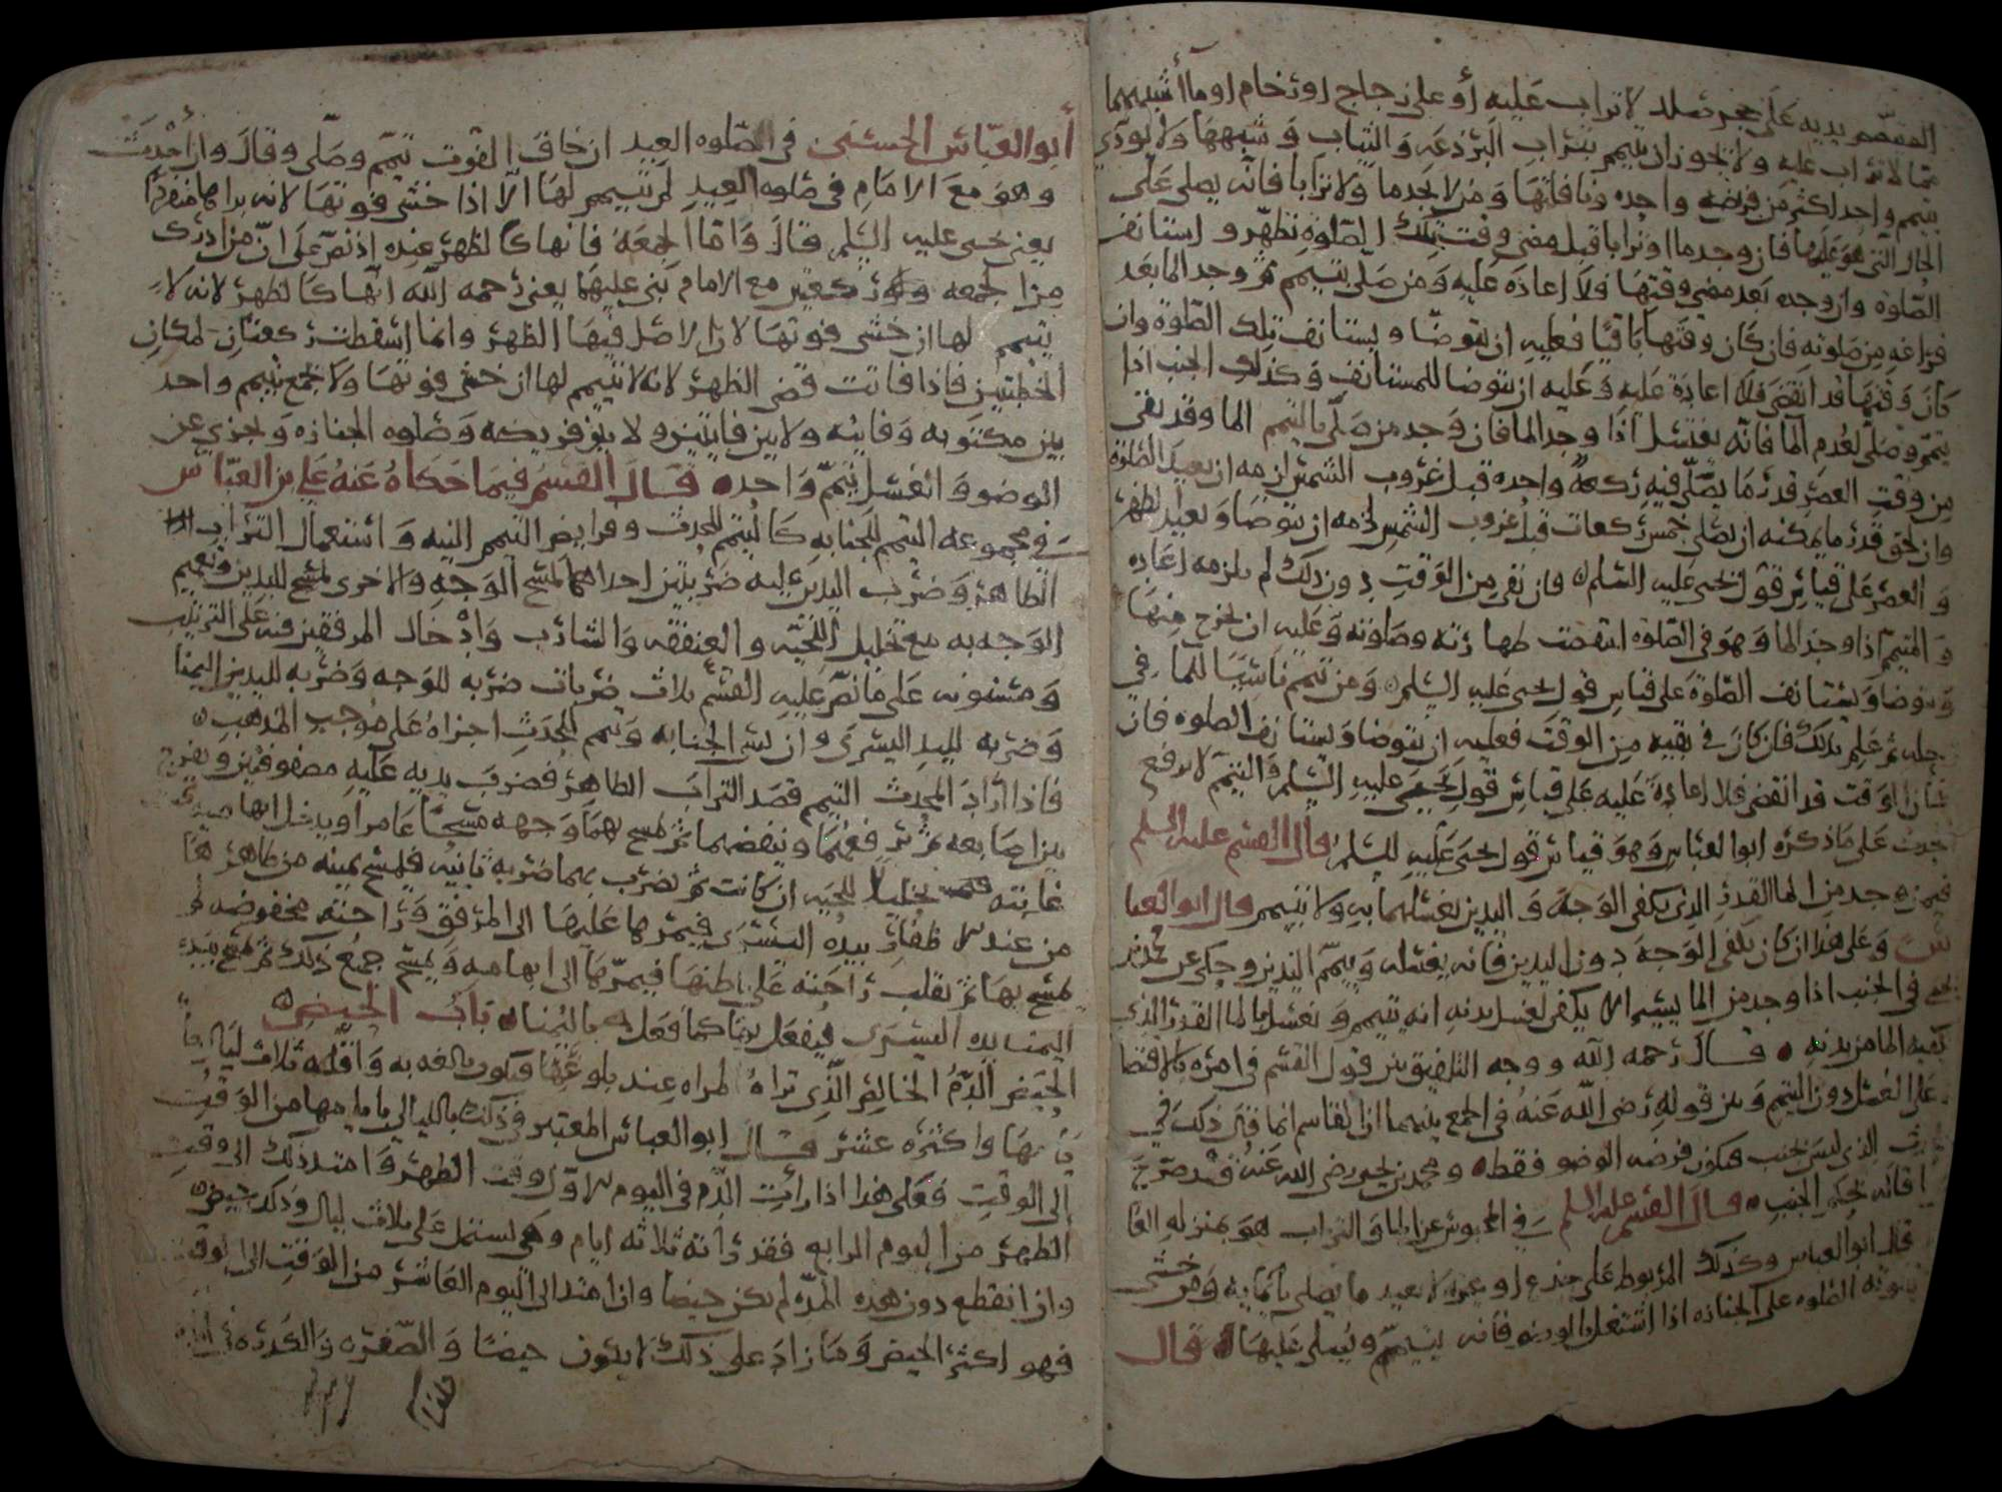 المتيمم يديه على حجر صلد لا تراب عليه أو على زجاج او رخام او ما أشبههما
مما لا تراب عليه ولا يجوز ان يتيمم بتراب البرذعه والثياب وشبهها ولا يودي
بتيمم واحد اكثر من فريضه واحده ونافلتها ومن لا يجد ما ولا ترابا فانه يصلي على
الحال التي هو عليها فان وجد ما او ترابا قبل مضي وقت تلك الصلوه تطهر واستانف
الصلوة وان وجده بعد مضي وقتها فلا اعاده عليه ومن صلى بتيمم ثم وجد الما بعد
فراغه من صلوته فان كان وقتها باقيا فعليه ان يتوضا ويستانف تلك الصلوة وان
كان وقتها قد انقضى فلا اعادة عليه وعليه ان يتوضا للمستانف وكذلك الجنب اذا
تيمم وصلى لعدم الما فانه يغتسل اذا وجد الما فان وجد من صلى بالتيمم الما وقد بقي
من وقت العصر قدر ما يصلي فيه ركعة واحده قبل غروب الشمس لزمه ان يعيد الصلوة
وان لحق قدر ما يمكنه ان يصلي خمس ركعات قبل غروب الشمس لزمه ان يتوضا ويعيد الظهر
والعصر على قياس قول يحيى عليه السلم فان بقي من الوقت دون ذلك لم يلزمه اعاده
والمتيمم اذا وجد الما وهو في الصلوة انتقضت طهارته وصلوته وعليه ان يخرج منها
ويتوضا ويستانف الصلوة على قياس قول يحيى عليه السلم ومن تيمم ناسيا للما في
رحله ثم علم بذلك فان كان في بقيه من الوقت فعليه ان يتوضا ويستانف الصلوه فان
كان الوقت قد انقضى فلا اعادة عليه على قياس قول يحيى عليه السلم والتيمم لا يرفع
الحدث على ما ذكره ابو العباس وهو قياس قول يحيى عليه السلم قال القسم عليه السلم
فيمن وجد من الما القدر الذي يكفي الوجه واليدين يغسلهما به ولا يتيمم قال ابو العبا
س وعلى هذا ان كان يكفي الوجه دون اليدين فانه يغسله وييمم اليدين وحكى عن محمد بن
يحيى في الجنب اذا وجد من الما يسيرا لا يكفي لغسل بدنه انه يتيمم ويغسل بالما القدر الذي
يكفيه الما من بدنه قال رحمه الله ووجه التلفيق بين قول القسم في امره بالاقتصا
على الغسل دون التيمم وبين قوله رضي الله عنه في الجمع بينهما ان القاسم انما قال ذلك في
الذي ليس بجنب فيكون فرضه الوضو فقط ومحمد بن يحيى رضي الله عنه قد صرح
فانه يحكم الجنب قال القسم عليه السلم في المحبوس عن الما والتراب هو بمنزله العا
قال ابو العباس وكذلك المربوط على جذع او نحوه لا يعيد ما يصلي بايمايه ومن خشي
فوته الصلوه على الجنازه اذا اشتغل بالوضو فانه يتيمم ويصلي عليها قال
أبو العباس الحسني في الصلوه العيد ان خاف الفوت تيمم وصلى وقال وان احدث
وهو مع الامام في صلوه العيد لم يتيمم لها الا اذا خشي فوتها لانه يراها منفردا
يعني يحيى عليه السلم وقال واما الجمعة فانها كالظهر عنده اذ نص على ان من ادرك
من الجمعه ركعتين مع الامام بنى عليهما يعني رحمه الله انها كالظهر لانه لا
يتيمم لها ان خشي فوتها لان الاصل فيها الظهر وانما اسقطت ركعتان لمكان
الخطبتين فاذا فاتت قضى الظهر لانه لا يتيمم لها ان خشي فوتها ولا يجمع بتيمم واحد
بين مكتوبه وفايته ولا بين فايتتين ولا بين فريضه وصلوه الجنازه ويجزي عن
الوضو والغسل تيمم واحد قال القسم فيما حكاه عنه علي بن العباس
في مجموعه التيمم للجنابه كالتيمم للحدث وفرايض التيمم النيه واستعمال التراب
الطاهر وضرب اليدين عليه ضربتين احداهما لمسح الوجه والاخرى لمسح اليدين وتعميم
الوجه به مع تخليل اللحيه والعنفقه والشارب وادخال المرفقين فيه على الترتيب
ومسنونه على ما نص عليه القسم ثلاث ضربات ضربه للوجه وضربه لليد اليمنا
وضربه لليد اليسرى وان نسي الجنابه وتيمم للحدث اجزاه على موجب المذهب
فاذا اراد المحدث التيمم قصد التراب الطاهر فضرب بيديه عليه مصفوفتين ويفرج
بين اصابعه ثم يرفعهما وينفضهما ثم يمسح بهما وجهه مسحا غامرا ويدخل ابهاميه
غابته تخليلا للحيه ان كانت ثم يضرب بهما ضربه ثانيه فيمسح يمينه من ظاهرها
من عند الاظفار بيده اليسرى فيمرها عليها الى المرفق وراحته مخفوضه
يمسح بها ثم يقلب راحته على باطنها فيمرها الى ابهامه ويمسح جميع ذلك ثم يمسح بيده
اليمنا يده اليسرى فيفعل بها كما فعل باليمنا باب الحيض
الحيض الدم الخالص الذي تراه المراه عند بلوغها فتكون بالغه به واقله ثلاث ليال
بايامها واكثره عشر قال ابو العباس المعتبر في ذلك بالليالي بايامها من الوقت
الى الوقت فعلى هذا اذا رات الدم في اليوم الاول وقت الظهر وامتد ذلك الى وقت
الظهر من اليوم الرابع فقد راته ثلاثه ايام وهي تشتمل على ثلاث ليال وذلك حيض
وان انقطع دون هذه المده لم يكن حيضا وان امتد الى اليوم العاشر من الوقت الى الوقت
فهو اكثر الحيض وما زاد على ذلك لا يكون حيضا والصفره والكدره في